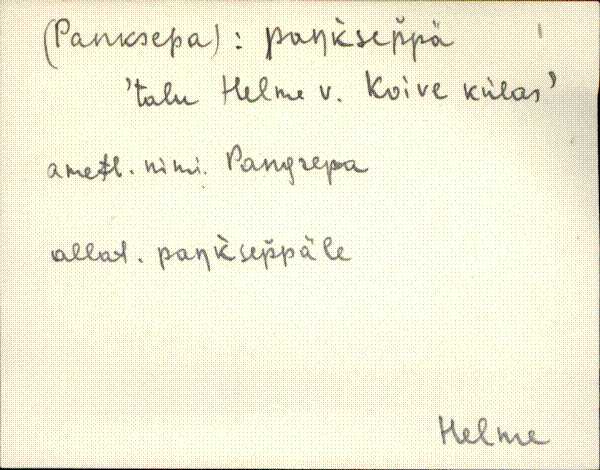 (Panksepa) : paŋk̀sep̌pä
'talu Helme v. Koive külas'
ametl. nimi. Pangsepa
allat. paŋk̀sep̌päle
Helme